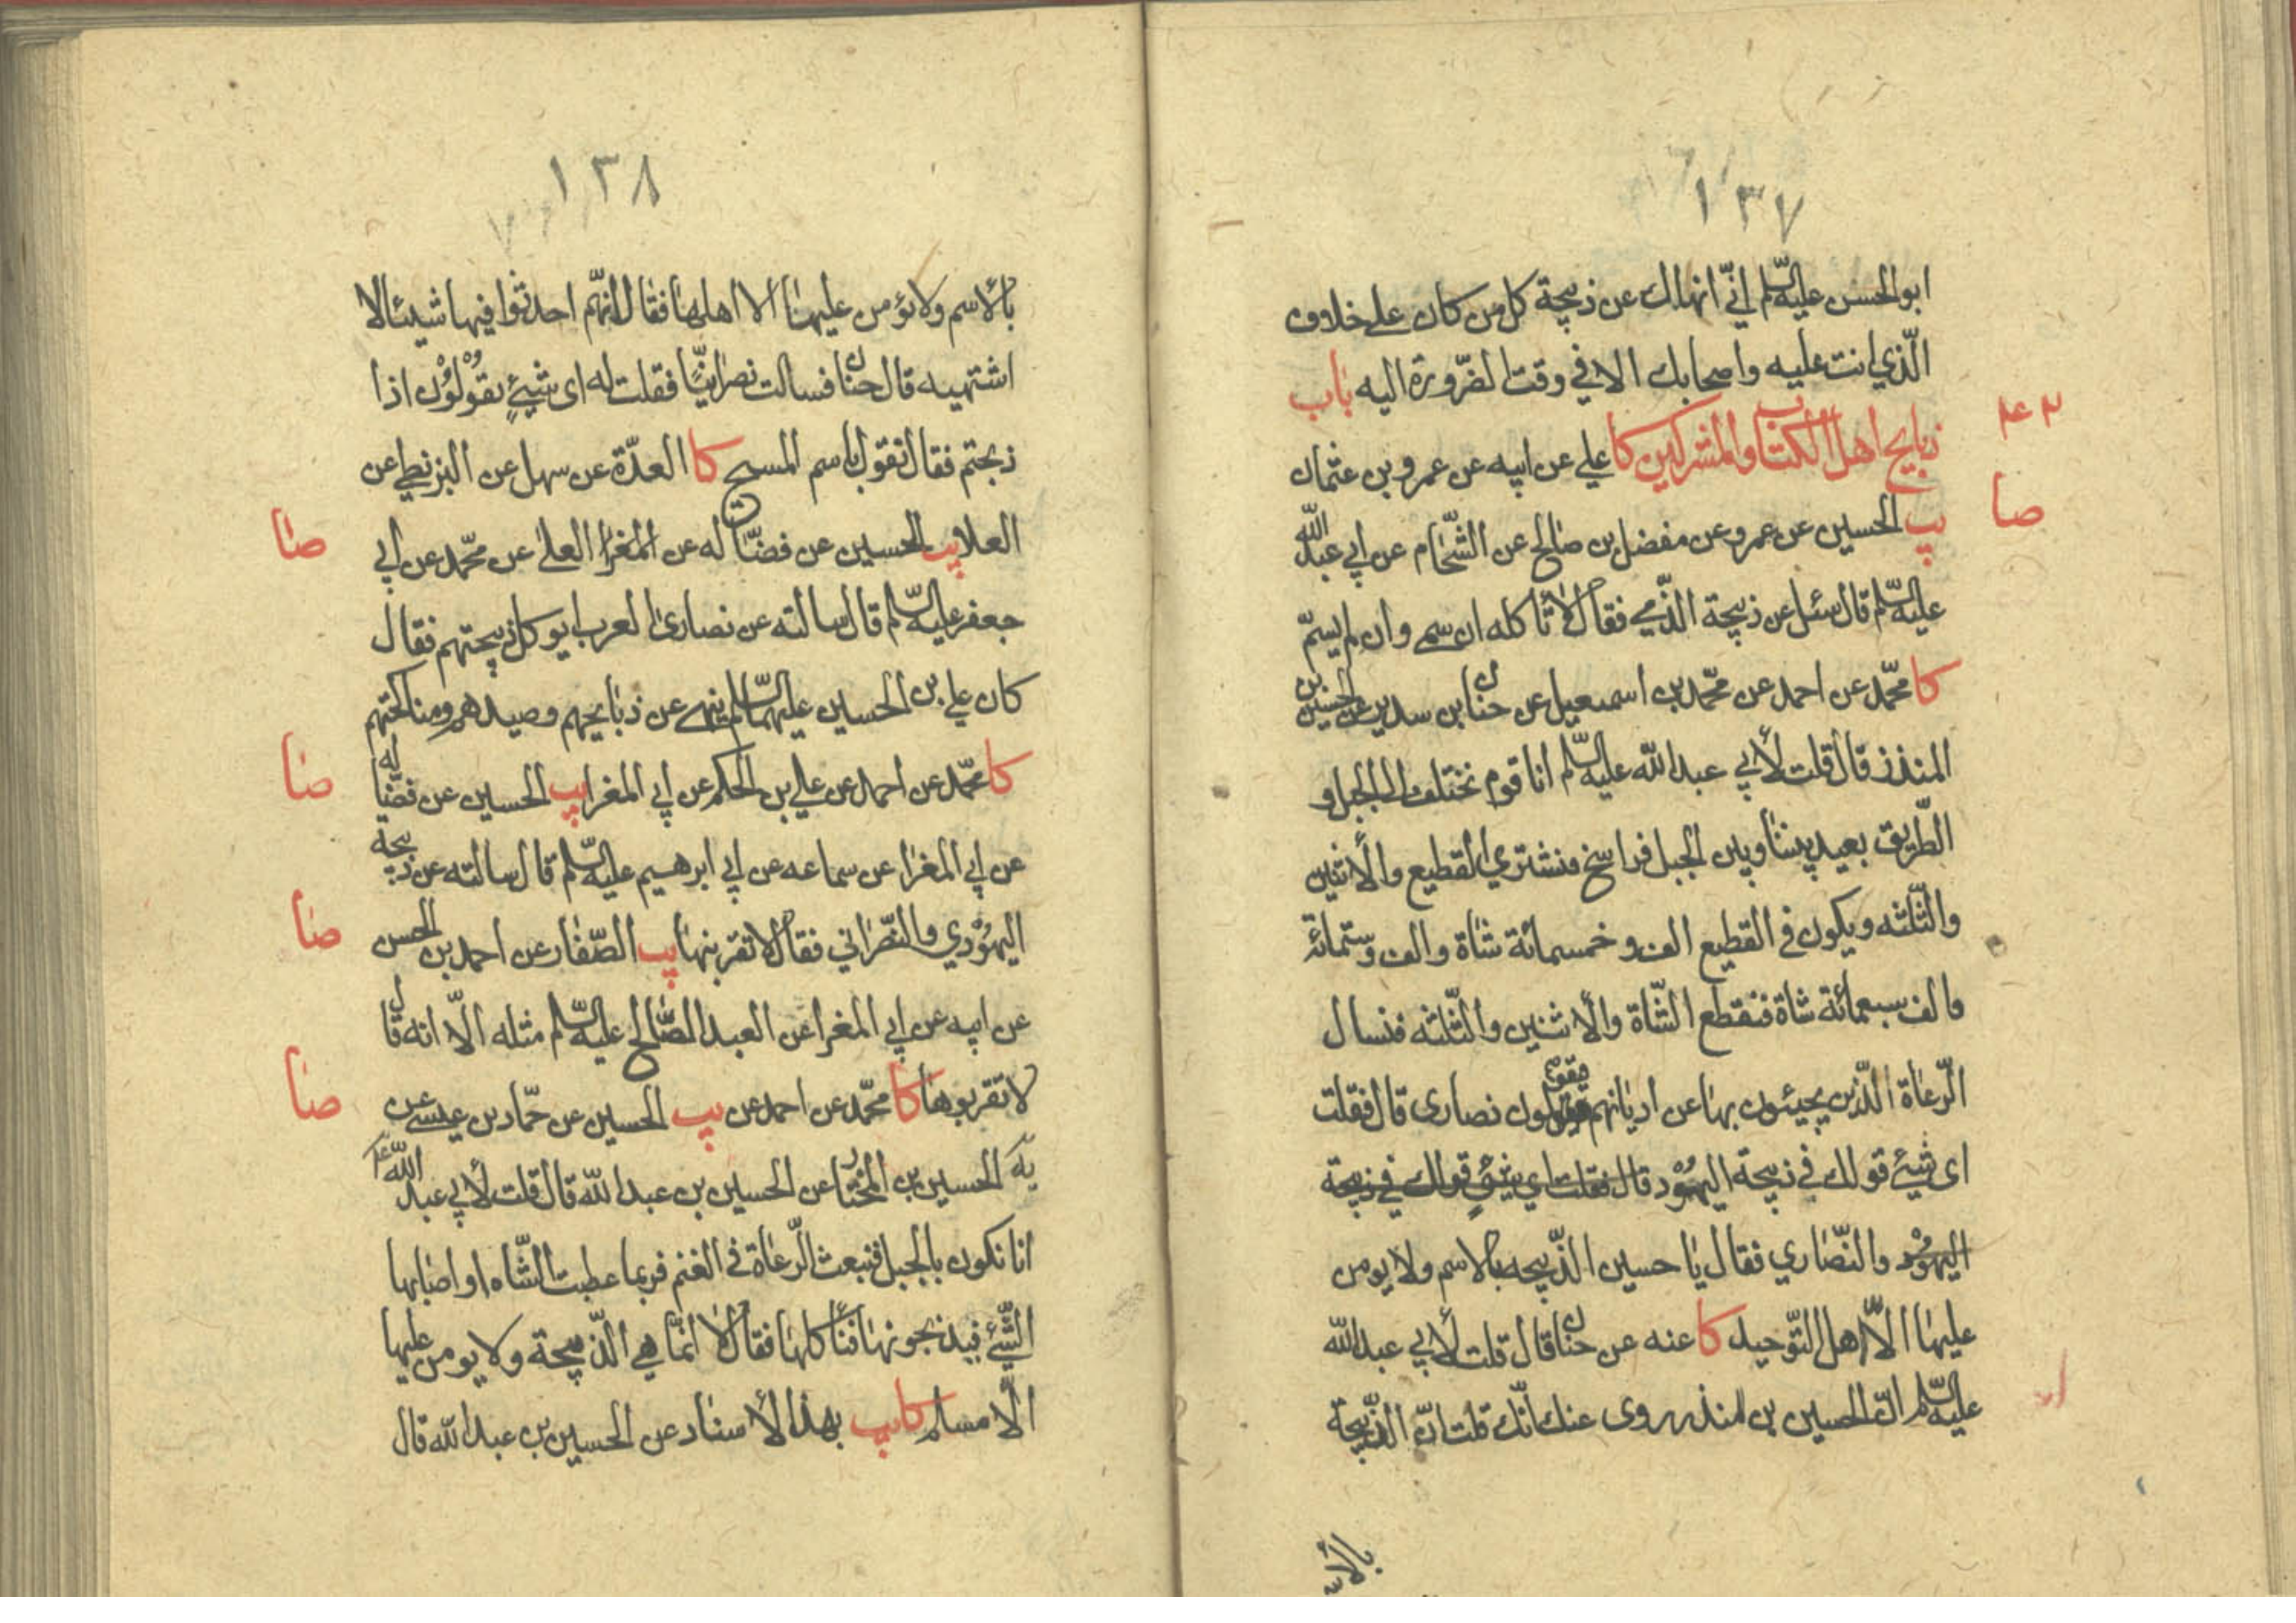 ١٣٧
ابو الحسن عليه السلم اني انهاك عن ذبيحة كل من كان على خلاف
الّذي انت عليه واصحابك الا في وقت الضّرورة اليه باب
ذبايح اهل الكتاب والمشركين كا علي عن ابيه عن عمرو بن عثمان
يب الحسين عن عمرو عن مفضل بن صالح عن الشّحّام عن ابي عبد الله
صا
عليه السّلم قال سئل عن ذبيحة الذّمي فقال لا تاكله ان سمى وان لم يسمّ
كا محمّد عن احمد عن محمّد بن اسمعيل عن حنان بن سدير عن الحسين بن
المنذر قال قلت لأبي عبد الله عليه السّلم انا قوم نختلف الى الجبل و
الطّريق بعيد بيننا وبين الجبل فراسخ فنشتري القطيع والأثنين
والثّلثه ويكون في القطيع الف وخمسمائة شاة والف وستمائة
والف سبعمائة شاة فتقطع الشّاة والأثنين والثّلثه فنسال
الرّعاة الّذين يجيئون بها عن اديانهم فيقولون نصارى قال فقلت
اى شيئ قولك في ذبيحة اليهود قال فقلت اي شيئ قولك في ذبيحة
اليهود والنّصاري فقال يا حسين الذّبيحه بالاسم ولا يومن
عليها الّا اهل التّوحيد كا عنه عن حنان قال قلت لأبي عبد الله
عليه السّلم انّ الحصين بن المنذر روى عنك انّك قلت انّ الذّبيحة
بالأسم
١٣٨
بالأسم ولا يؤمن عليها الا اهلها فقال انّهم احدثوا فيها شيئا لا
اشتهيه قال حنان فسالت نصرانيّا فقلت له اى شيئٍ يقولون اذا
ذبحتم فقال نقول باسم المسيح كا العدّة عن سهل عن البزنطي عن
العلا يب الحسين عن فضاله عن المغرا العلى عن محمّد عن ابي
صا
جعفر عليه السّلم قال سالته عن نصارى العرب ايوكل ذبيحتهم فقال
كان علي بن الحسين عليهما السّلم ينهى عن ذبايحهم وصيدهم ومناكحتهم
كا محمّد عن احمد عن علي بن الحكم عن ابي المغرا يب الحسين عن فضاله
صا
عن ابي المغرا عن سماعه عن ابي ابرهيم عليه السّلم قال سالته عن ذبيحة
اليهودي والنّصراني فقال لا تقربنها يب الصّفار عن احمد بن الحسن
صا
عن ابيه عن ابي المغرا عن العبد الصّالح عليه السّلم مثله الّا انه قال
لا تقربوها كا محمّد عن احمد عن يب الحسين عن حمّاد بن عيسى عن
صا
الحسين بن المختار عن الحسين بن عبد الله قال قلت لأبي عبد الله ع
انا نكون بالجبل فنبعث الرّعاة في الغنم فربما عطبت الشّاه او اصابها
الشّيئ فيذبحونها فناكلها فقال لا انّما هي الذّبيحة ولا يومن عليها
الّا مسلم كا يب بهذا الأسناد عن الحسين بن عبد الله قال